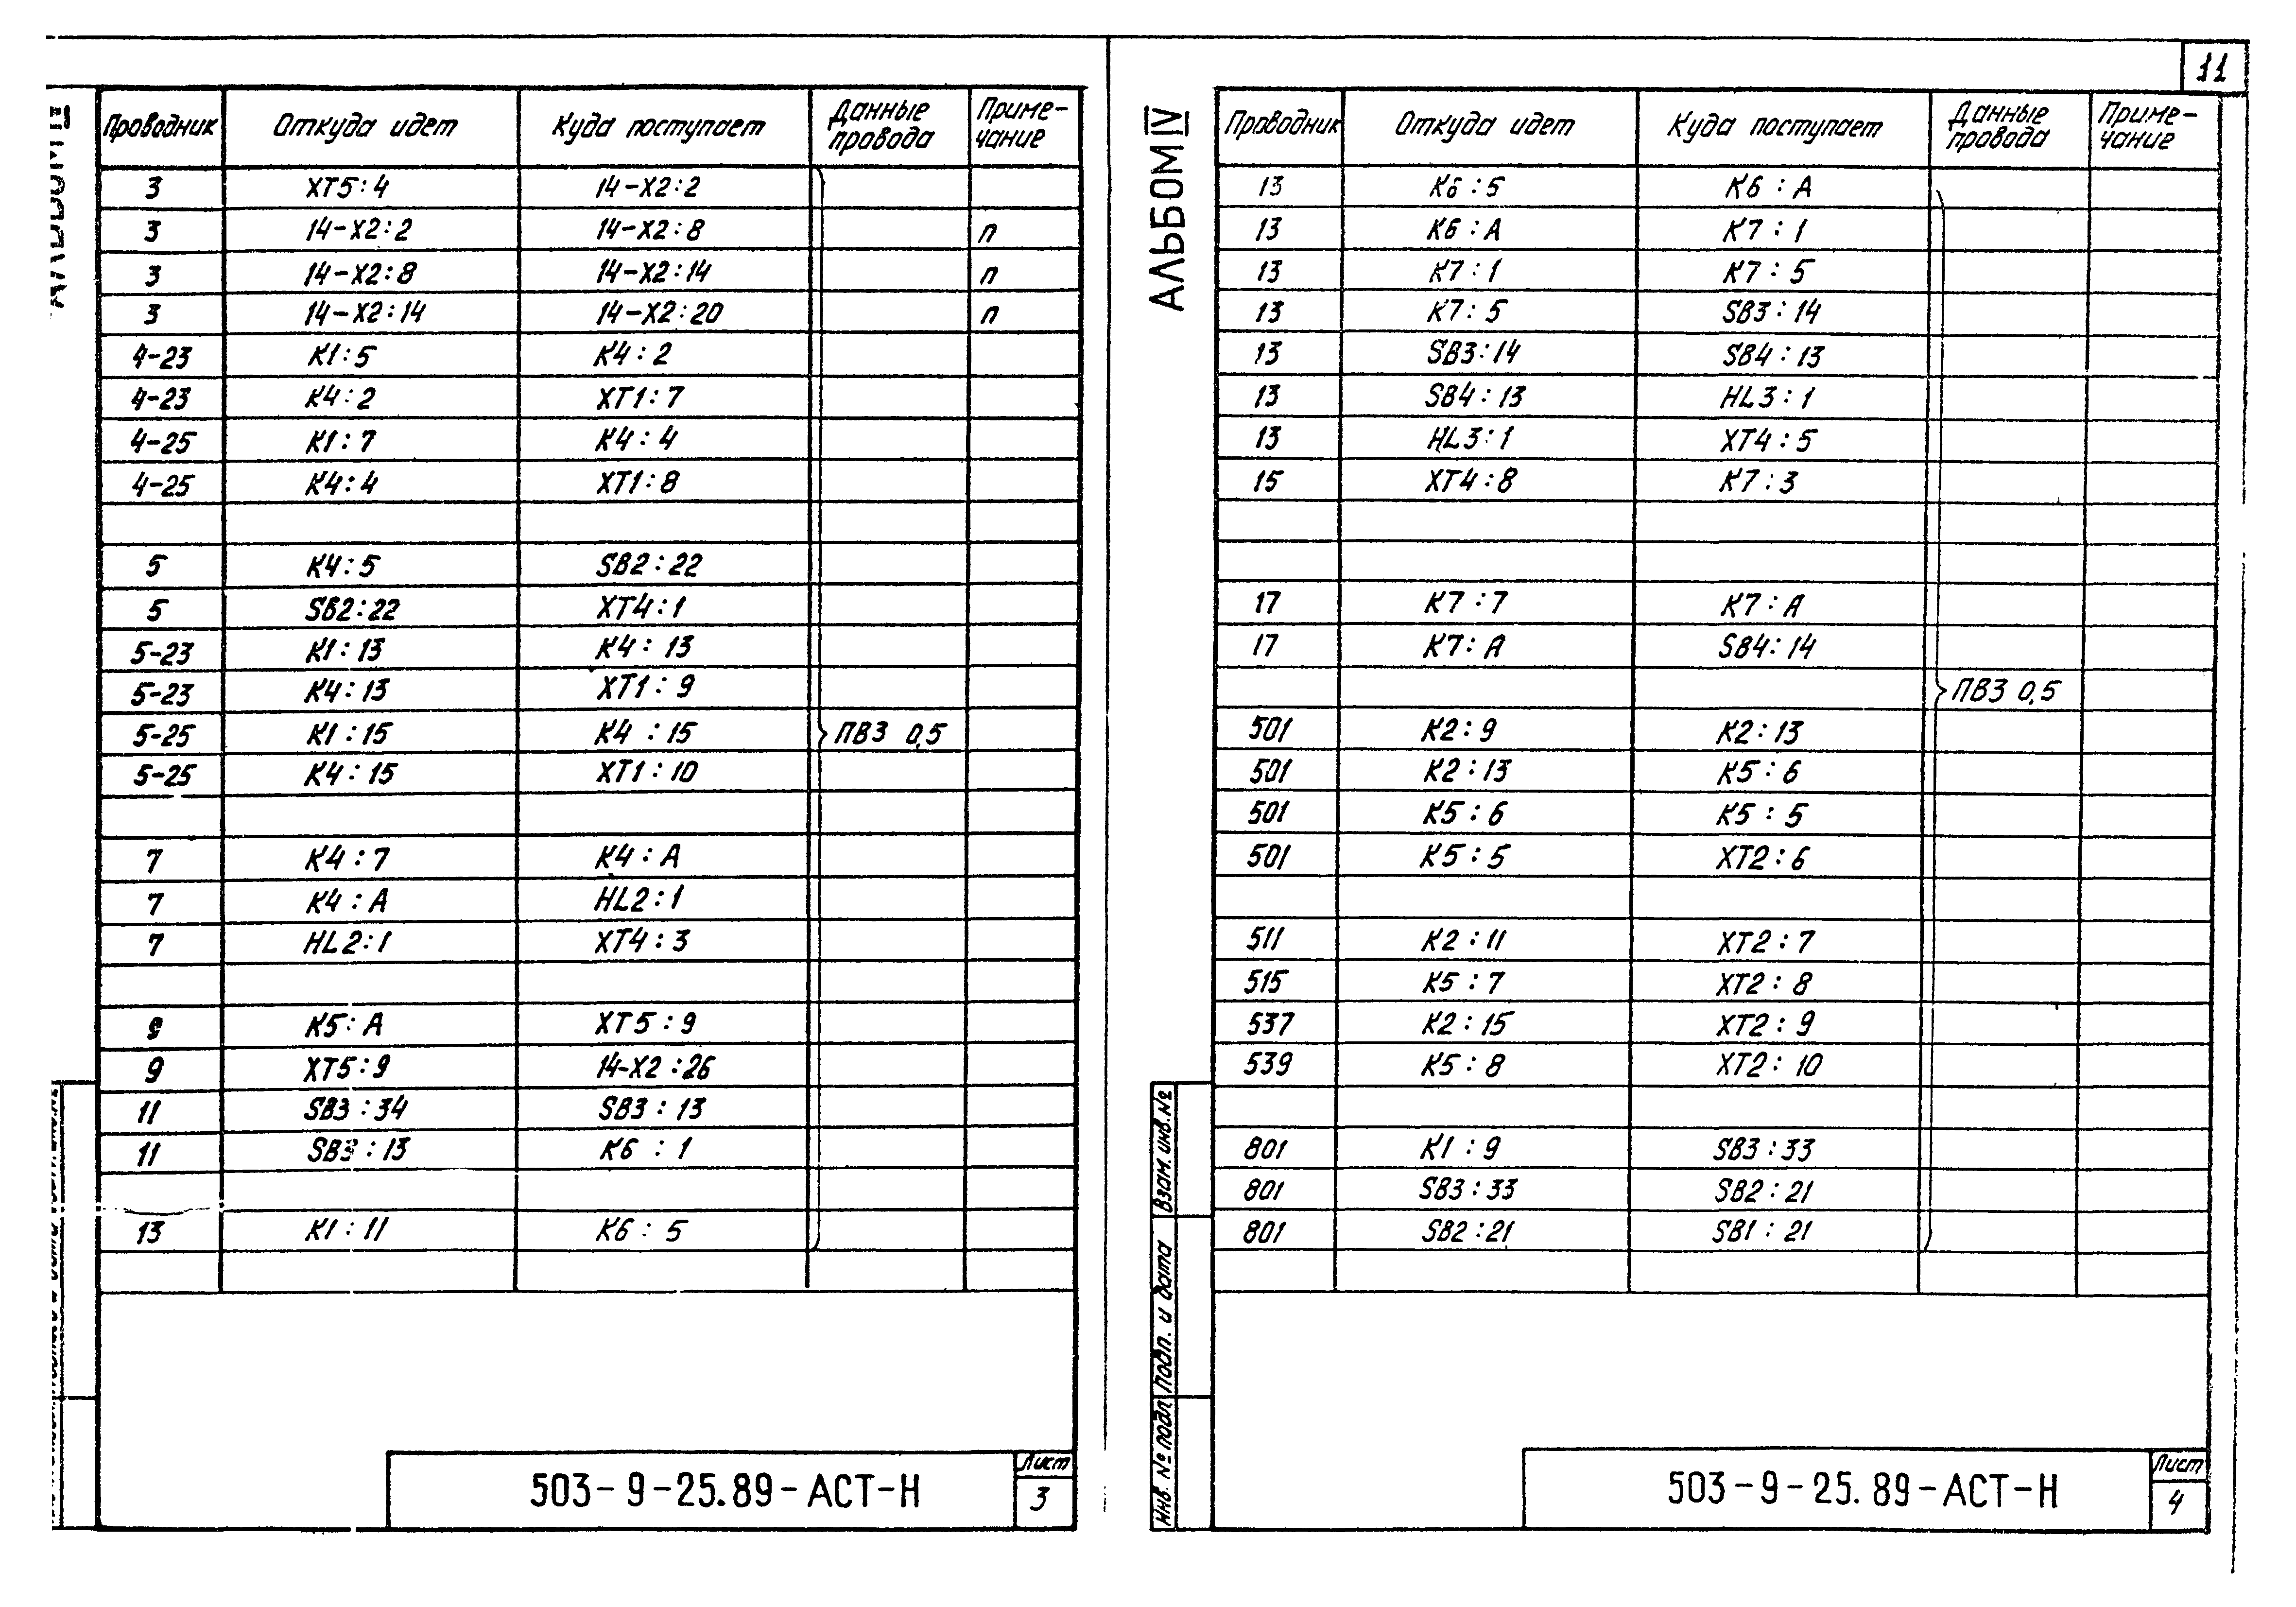 11
Проводник Откуда идет Куда поступает Данные провода Приме-чание
3 XT5:4 14-X2:2
3 14-X2:2 14-X2:8 п
3 14-X2:8 14-X2:14 п
3 14-X2:14 14-X2:20 п
4-23 K1:5 K4:2
4-23 K4:2 XT1:7
4-25 K1:7 K4:4
4-25 K4:4 XT1:8
5 K4:5 SB2:22
5 SB2:22 XT4:1
5-23 K1:13 K4:13
5-23 K4:13 XT1:9
5-25 K1:15 K4:15 ПВ3 0,5
5-25 K4:15 XT1:10
7 K4:7 K4:A
7 K4:A HL2:1
7 HL2:1 XT4:3
9 K5:A XT5:9
9 XT5:9 14-X2:26
11 SB3:34 SB3:13
11 SB3:13 K6:1
13 K1:11 K6:5
503-9-25.89-АСТ-Н
Лист
3
АЛЬБОМ IV
Проводник Откуда идет Куда поступает Данные провода Приме-чание
13 K6:5 K6:A
13 K6:A K7:1
13 K7:1 K7:5
13 K7:5 SB3:14
13 SB3:14 SB4:13
13 SB4:13 HL3:1
13 HL3:1 XT4:5
15 XT4:8 K7:3
17 K7:7 K7:A
17 K7:A SB4:14
ПВ3 0,5
501 K2:9 K2:13
501 K2:13 K5:6
501 K5:6 K5:5
501 K5:5 XT2:6
511 K2:11 XT2:7
515 K5:7 XT2:8
537 K2:15 XT2:9
539 K5:8 XT2:10
801 K1:9 SB3:33
801 SB3:33 SB2:21
801 SB2:21 SB1:21
Инв. № подл.
Подп. и дата
Взам. инв. №
503-9-25.89-АСТ-Н
Лист
4